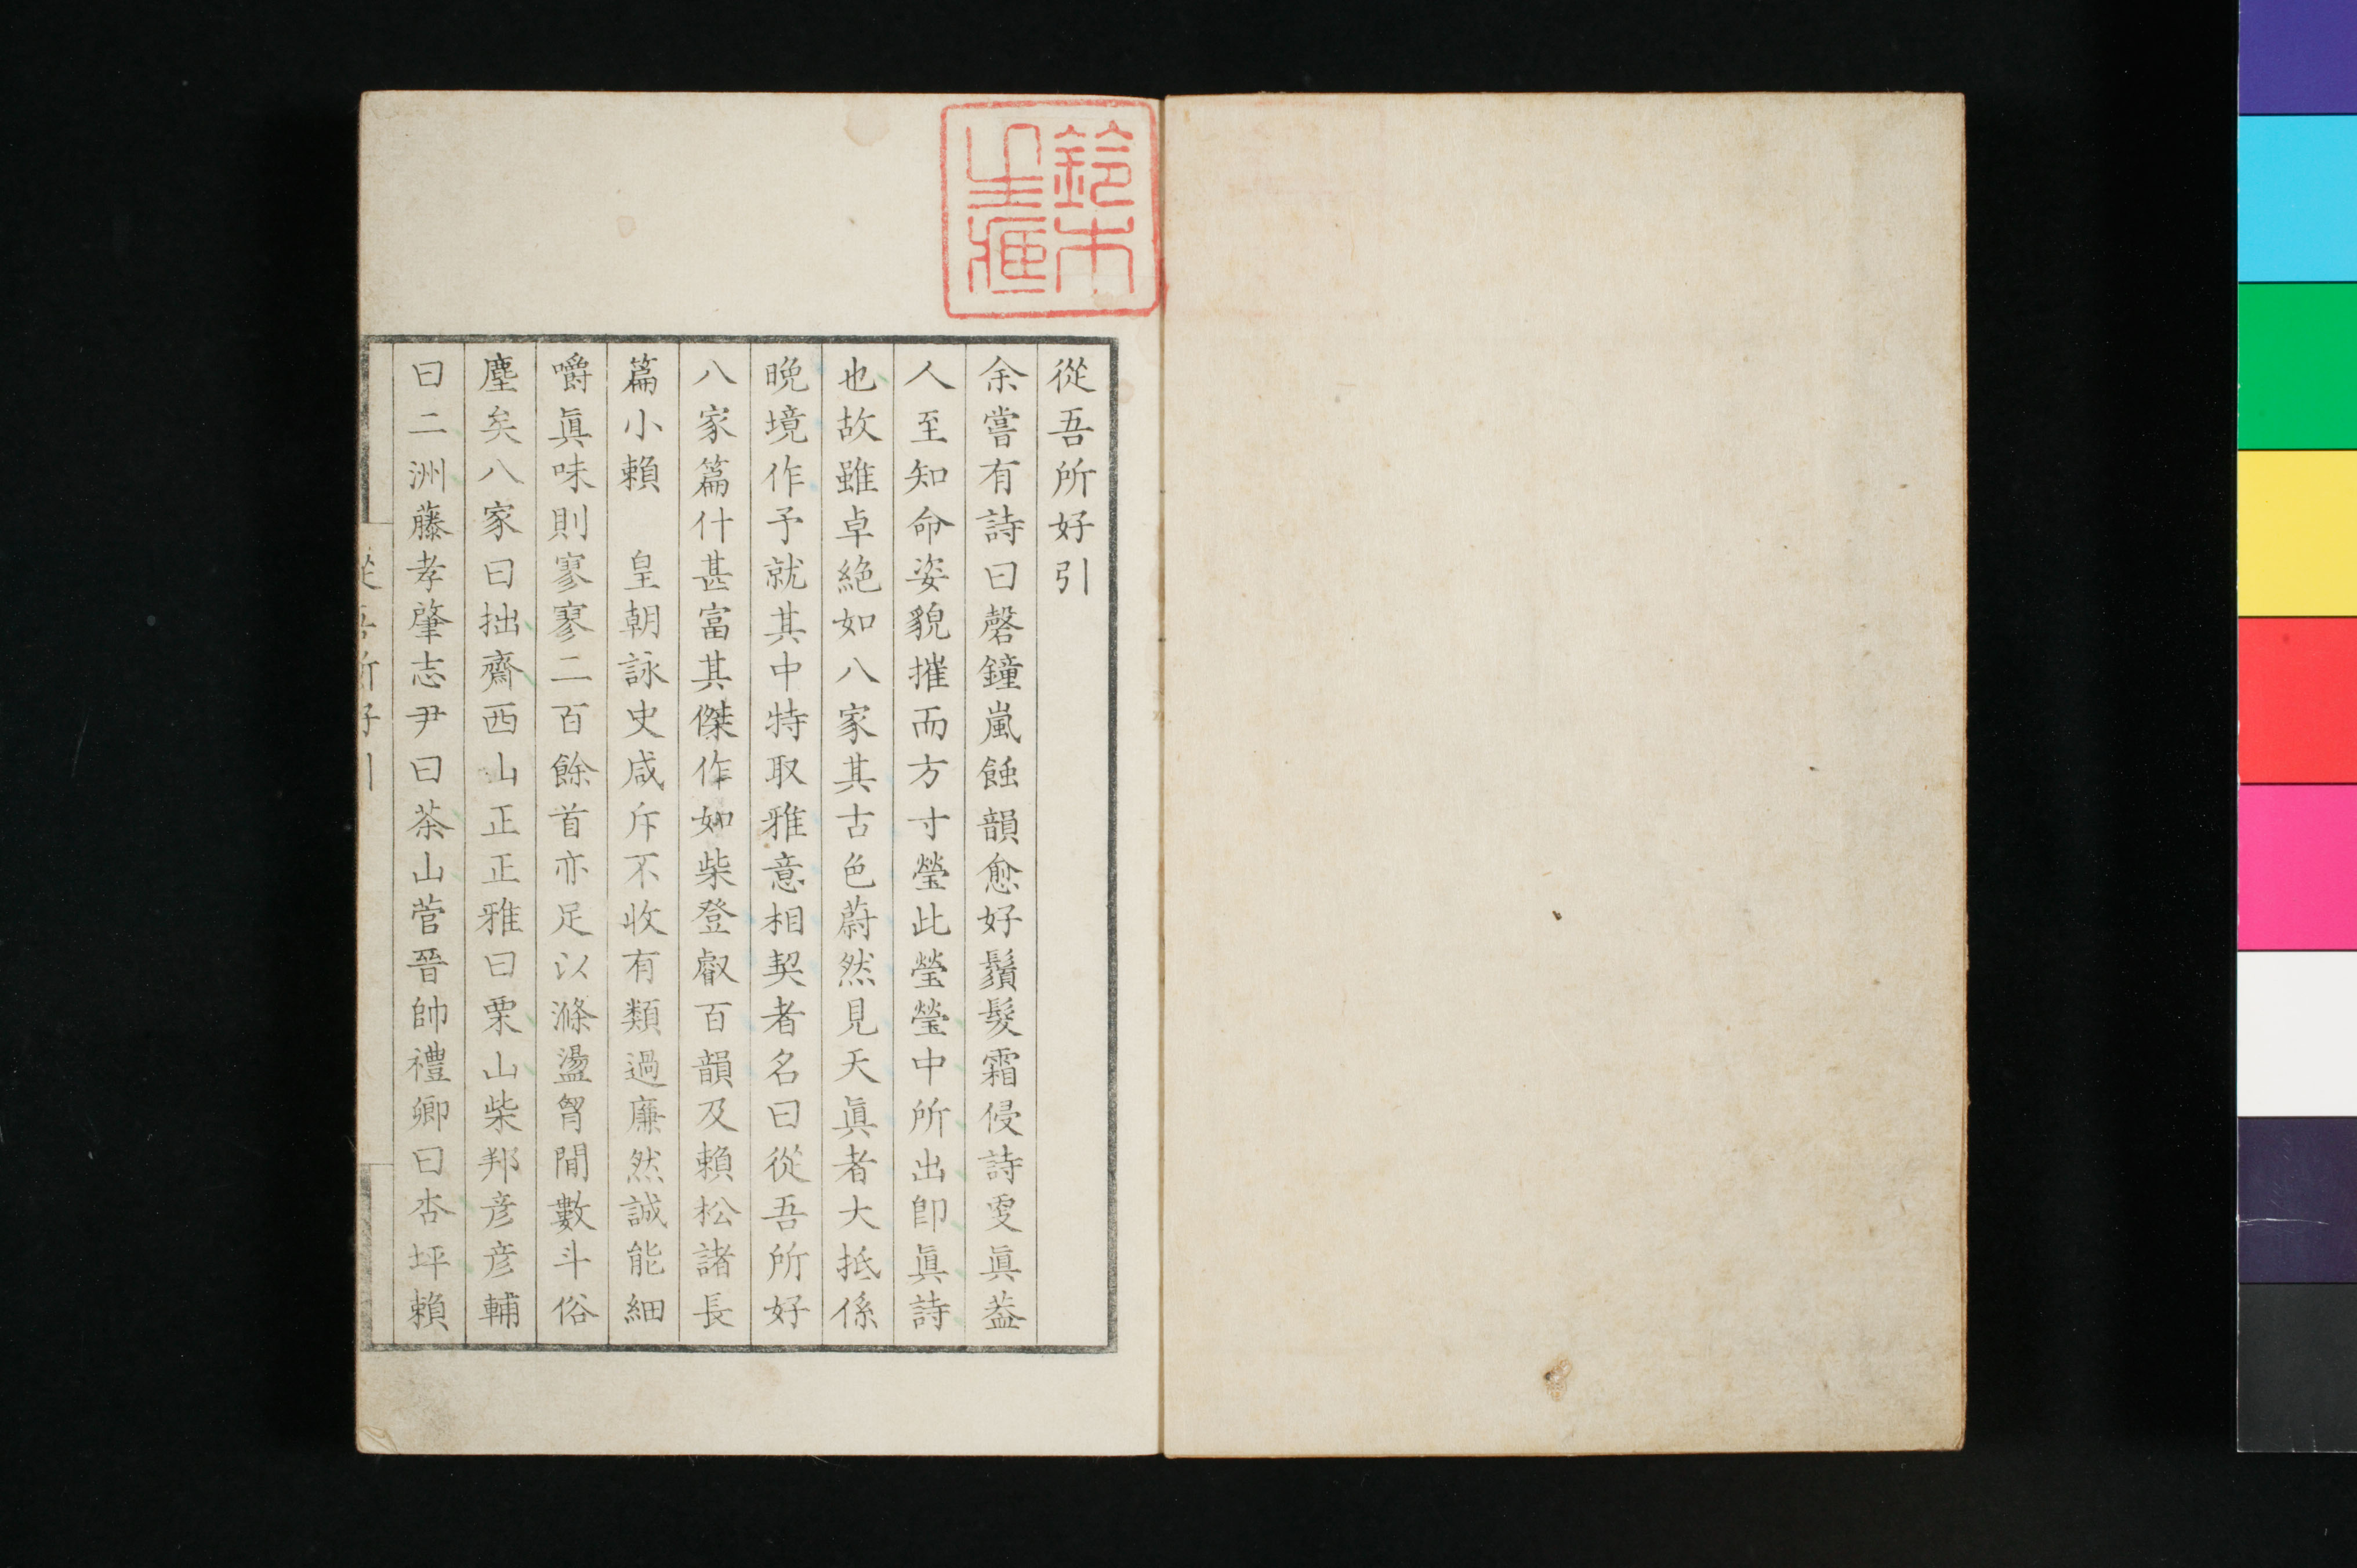 從吾所好引
余嘗有詩曰磬鐘嵐蝕韻愈好鬚髮霜侵詩叓眞葢
人至知命姿貌摧而方寸瑩此瑩瑩中所出卽眞詩
也故雖卓絶如八家其古色蔚然見天眞者大抵係
晩境作予就其中特取雅意相契者名曰從吾所好
八家篇什甚富其傑作如柴登叡百韻及賴松諸長
篇小賴　皇朝詠史咸斥不收有類過廉然誠能細
嚼眞味則寥寥二百餘首亦足以滌盪胷間數斗俗
塵矣八家曰拙齋西山正正雅曰栗山柴邦彦彦輔
曰二洲藤孝肇志尹曰茶山菅晉帥禮卿曰杏坪賴
從吾所好引